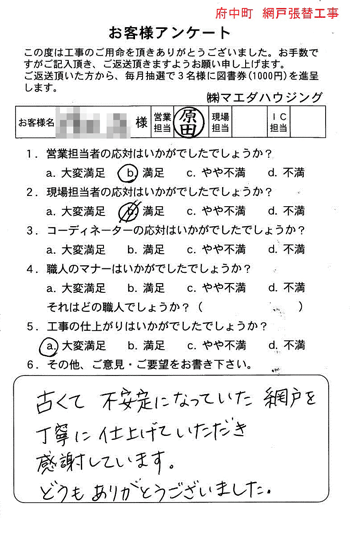 府中町　網戸張替工事
お客様アンケート
この度は工事のご用命を頂きありがとうございました。お手数で
すがご記入頂き、ご返送頂きますようお願い申し上げます。
ご返送頂いた方から、毎月抽選で３名様に図書券(1000円)を進呈
します。
㈱マエダハウジング
お客様名 様 営業担当 原田 現場担当 ＩＣ担当
１．営業担当者の応対はいかがでしたでしょうか？
a. 大変満足 b. 満足 c. やや不満 d. 不満
２．現場担当者の応対はいかがでしたでしょうか？
a. 大変満足 b. 満足 c. やや不満 d. 不満
３．コーディネーターの応対はいかがでしたでしょうか？
a. 大変満足 b. 満足 c. やや不満 d. 不満
４．職人のマナーはいかがでしたでしょうか？
a. 大変満足 b. 満足 c. やや不満 d. 不満
それはどの職人でしょうか？（　　　）
５．工事の仕上がりはいかがでしたでしょうか？
a. 大変満足 b. 満足 c. やや不満 d. 不満
６．その他、ご意見・ご要望をお書き下さい。
古くて 不安定になっていた 網戸を
丁寧に 仕上げていただき
感謝しています。
どうもありがとうございました。